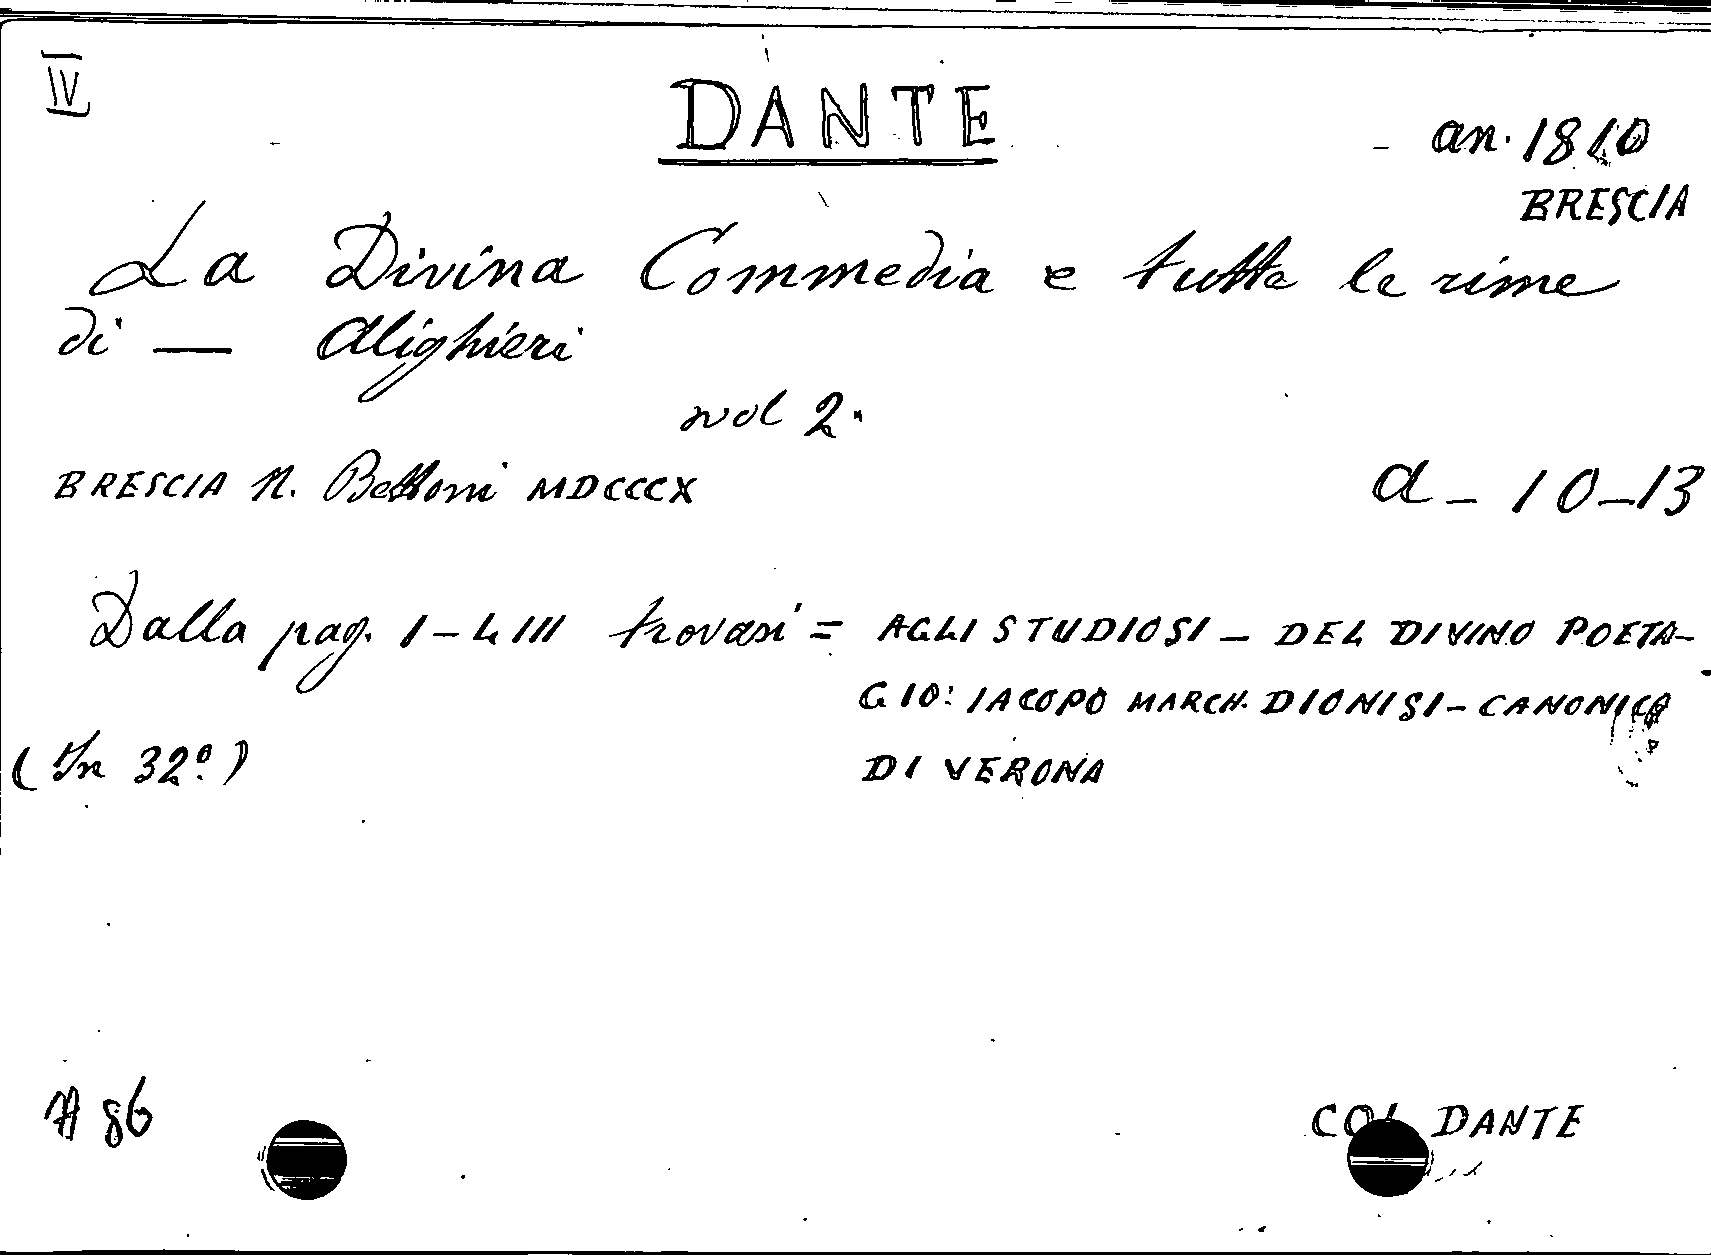 IV
DANTE
an. 1810
BRESCIA
La Divina Commedia e tutte le rime
di — Alighieri
vol 2.
BRESCIA N. Bettoni MDCCCX
a - 10-13
Dalla pag. I-LIII trovasi = AGLI STUDIOSI - DEL DIVINO POETA-
GIO: IACOPO MARCH. DIONISI - CANONICO
DI VERONA
(In 32º)
A 86
COL DANTE